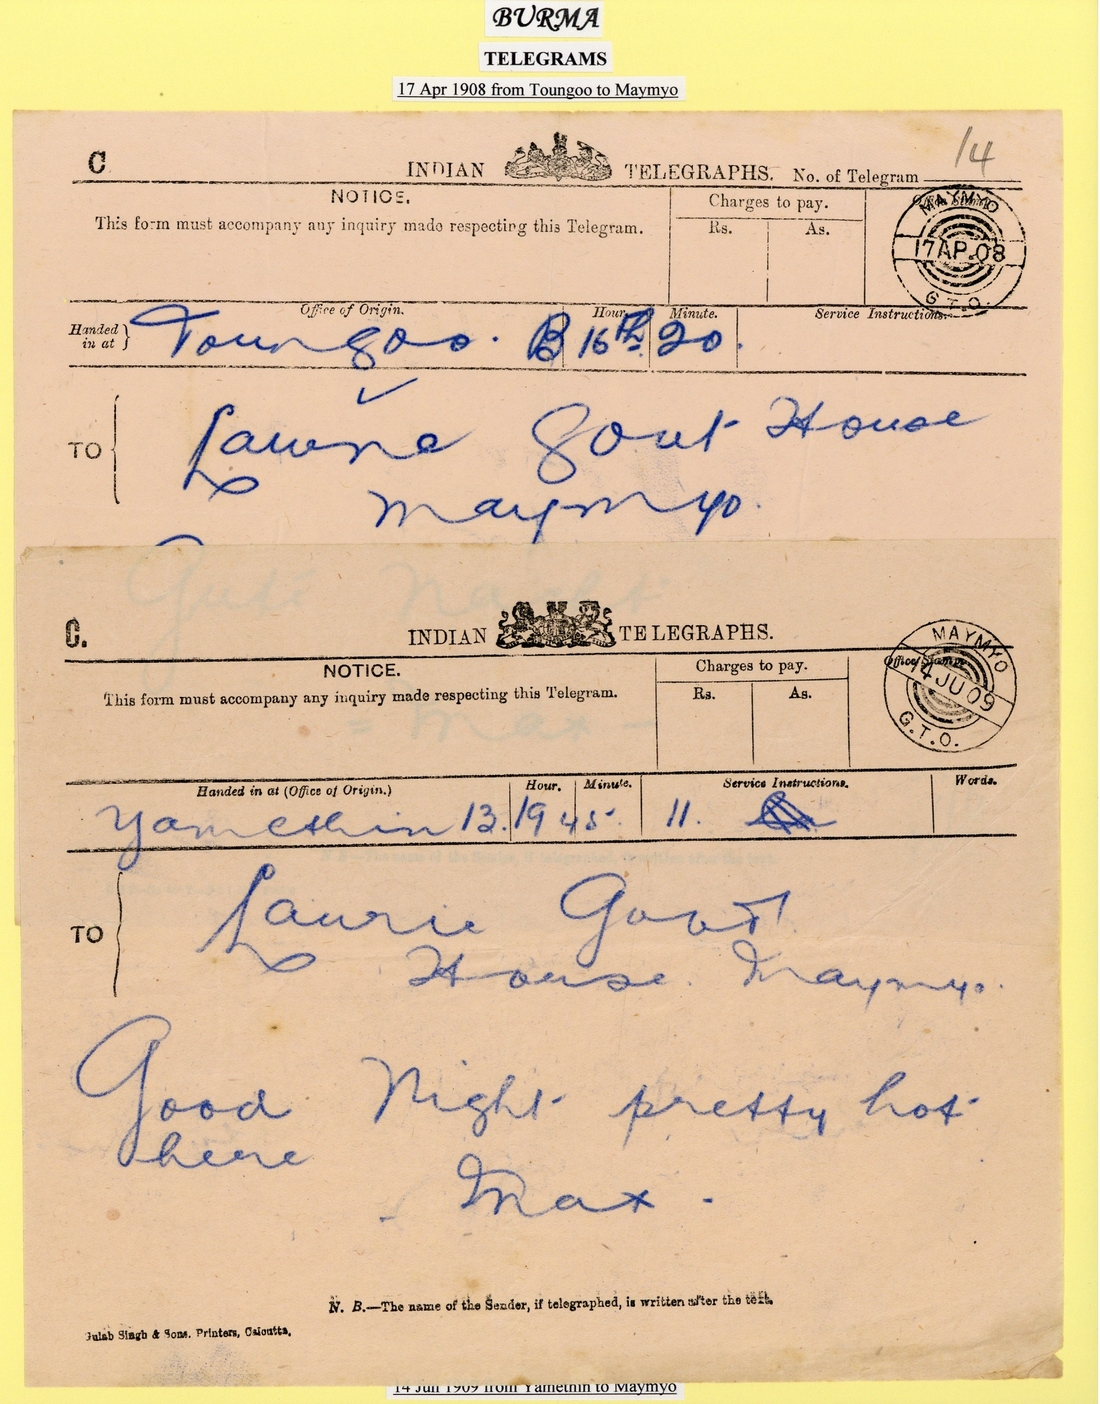 BURMA
TELEGRAMS
17 Apr 1908 from Toungoo to Maymyo
C INDIAN TELEGRAPHS. No. of Telegram 14
NOTICE.
This form must accompany any inquiry made respecting this Telegram.
Charges to pay.
Rs. As.
Office Stamp
MAYMYO
17 AP.08
G.T.O.
Handed in at } Office of Origin. Hour. Minute. Service Instructions.
Toungoo. B 16th 20.
TO Lawrie Govt House
Maymyo.
Gute Nacht
= Max -
C. INDIAN TELEGRAPHS.
NOTICE.
This form must accompany any inquiry made respecting this Telegram.
Charges to pay.
Rs. As.
Office Stamp
MAYMYO
14 JU 09
G.T.O.
Handed in at (Office of Origin.) Hour. Minute. Service Instructions. Words.
Yamethin 13. 19 45. 11.
TO Laurie Govt
House. Maymyo.
Good Night pretty hot
here
- Max -
N. B.—The name of the Sender, if telegraphed, is written after the text.
Gulab Singh & Sons. Printers, Calcutta.
14 Jun 1909 from Yamethin to Maymyo